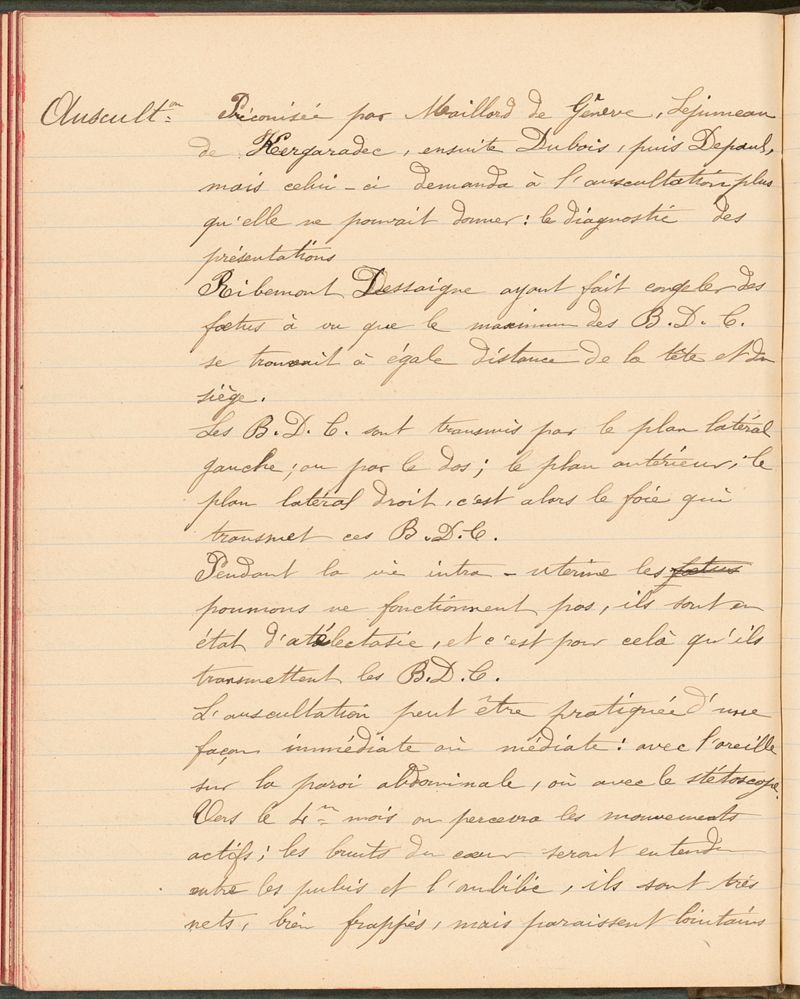 Auscult.on Préconisée par Maillord de Génève, Lejumeau
de Kergaradec, ensuite Dubois, puis Depaul,
mais celui-ci demanda à l'auscultation plus
qu'elle ne pouvait donner : le diagnostic des
présentations
Ribemont Dessaigne ayant fait congeler des
foetus à vu que le maximum des B.D.C.
se trouvait à égale distance de la tête et du
siège.
Les B.D.C. sont transmis par le plan latéral
gauche ; ou par le dos ; le plan antérieur, le
plan latéral droit, c'est alors le foie qui
transmet ces B.D.C.
Pendant la vie intra-uterine les foetus
poumons ne fonctionnent pas, ils sont en
état d'atélectasie, et c'est pour celà qu'ils
transmettent les B.D.C.
L'auscultation peut être pratiquée d'une
façon immédiate ou médiate : avec l'oreille
sur la paroi abdominale, où avec le stétoscope.
Vers le 4me mois on percevra les mouvements
actifs ; les bruits du coeur seront entendu
entre les pubis et l'ombilic, ils sont très
nets, bien frappés, mais paraissent lointains